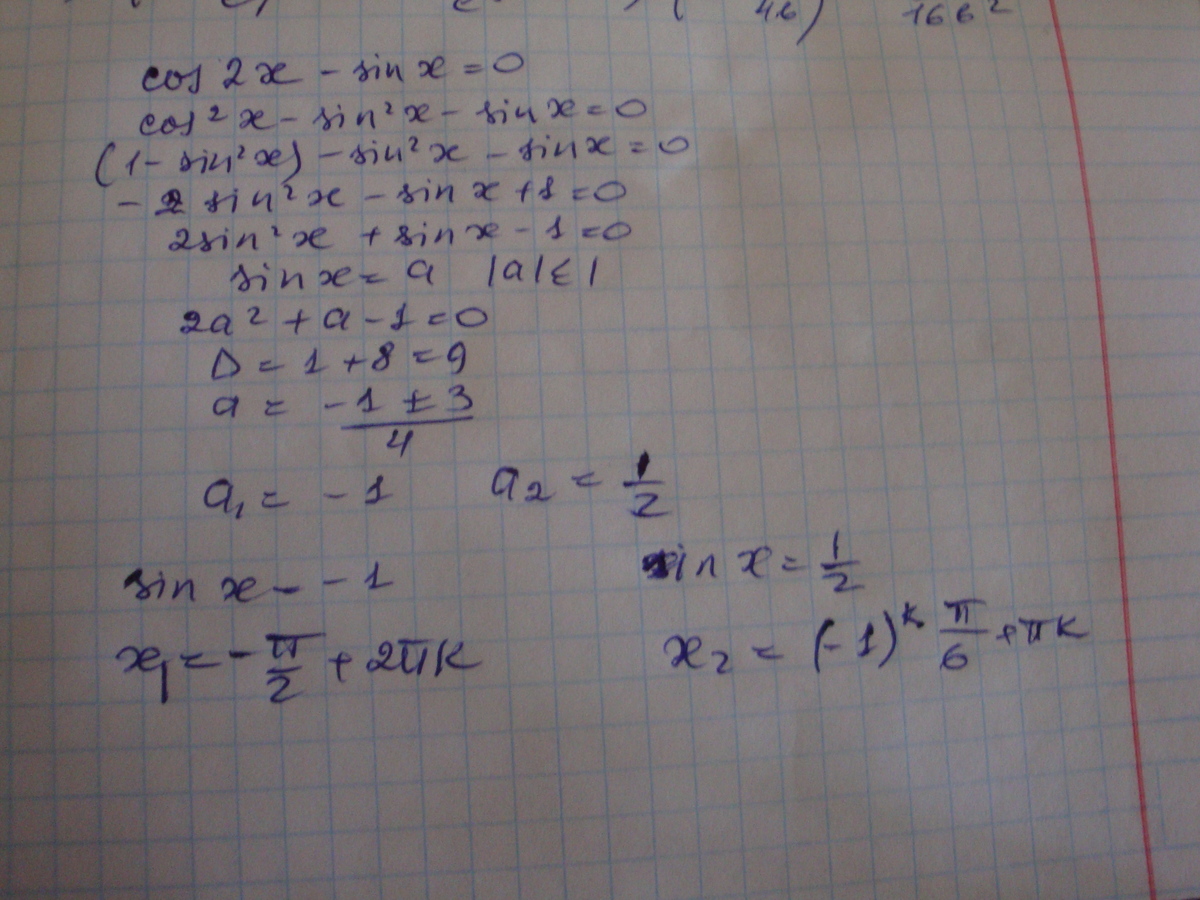 4б) 16б²
cos 2x - sin x = 0
cos² x - sin² x - sin x = 0
(1 - sin² x) - sin² x - sin x = 0
- 2 sin² x - sin x + 1 = 0
2 sin² x + sin x - 1 = 0
sin x = a |a| ≤ 1
2a² + a - 1 = 0
D = 1 + 8 = 9
a = (-1 ± 3)/4
a₁ = - 1 a₂ = 1/2
sin x = - 1 sin x = 1/2
x₁ = - π/2 + 2πk x₂ = (-1)ᵏ π/6 + πk